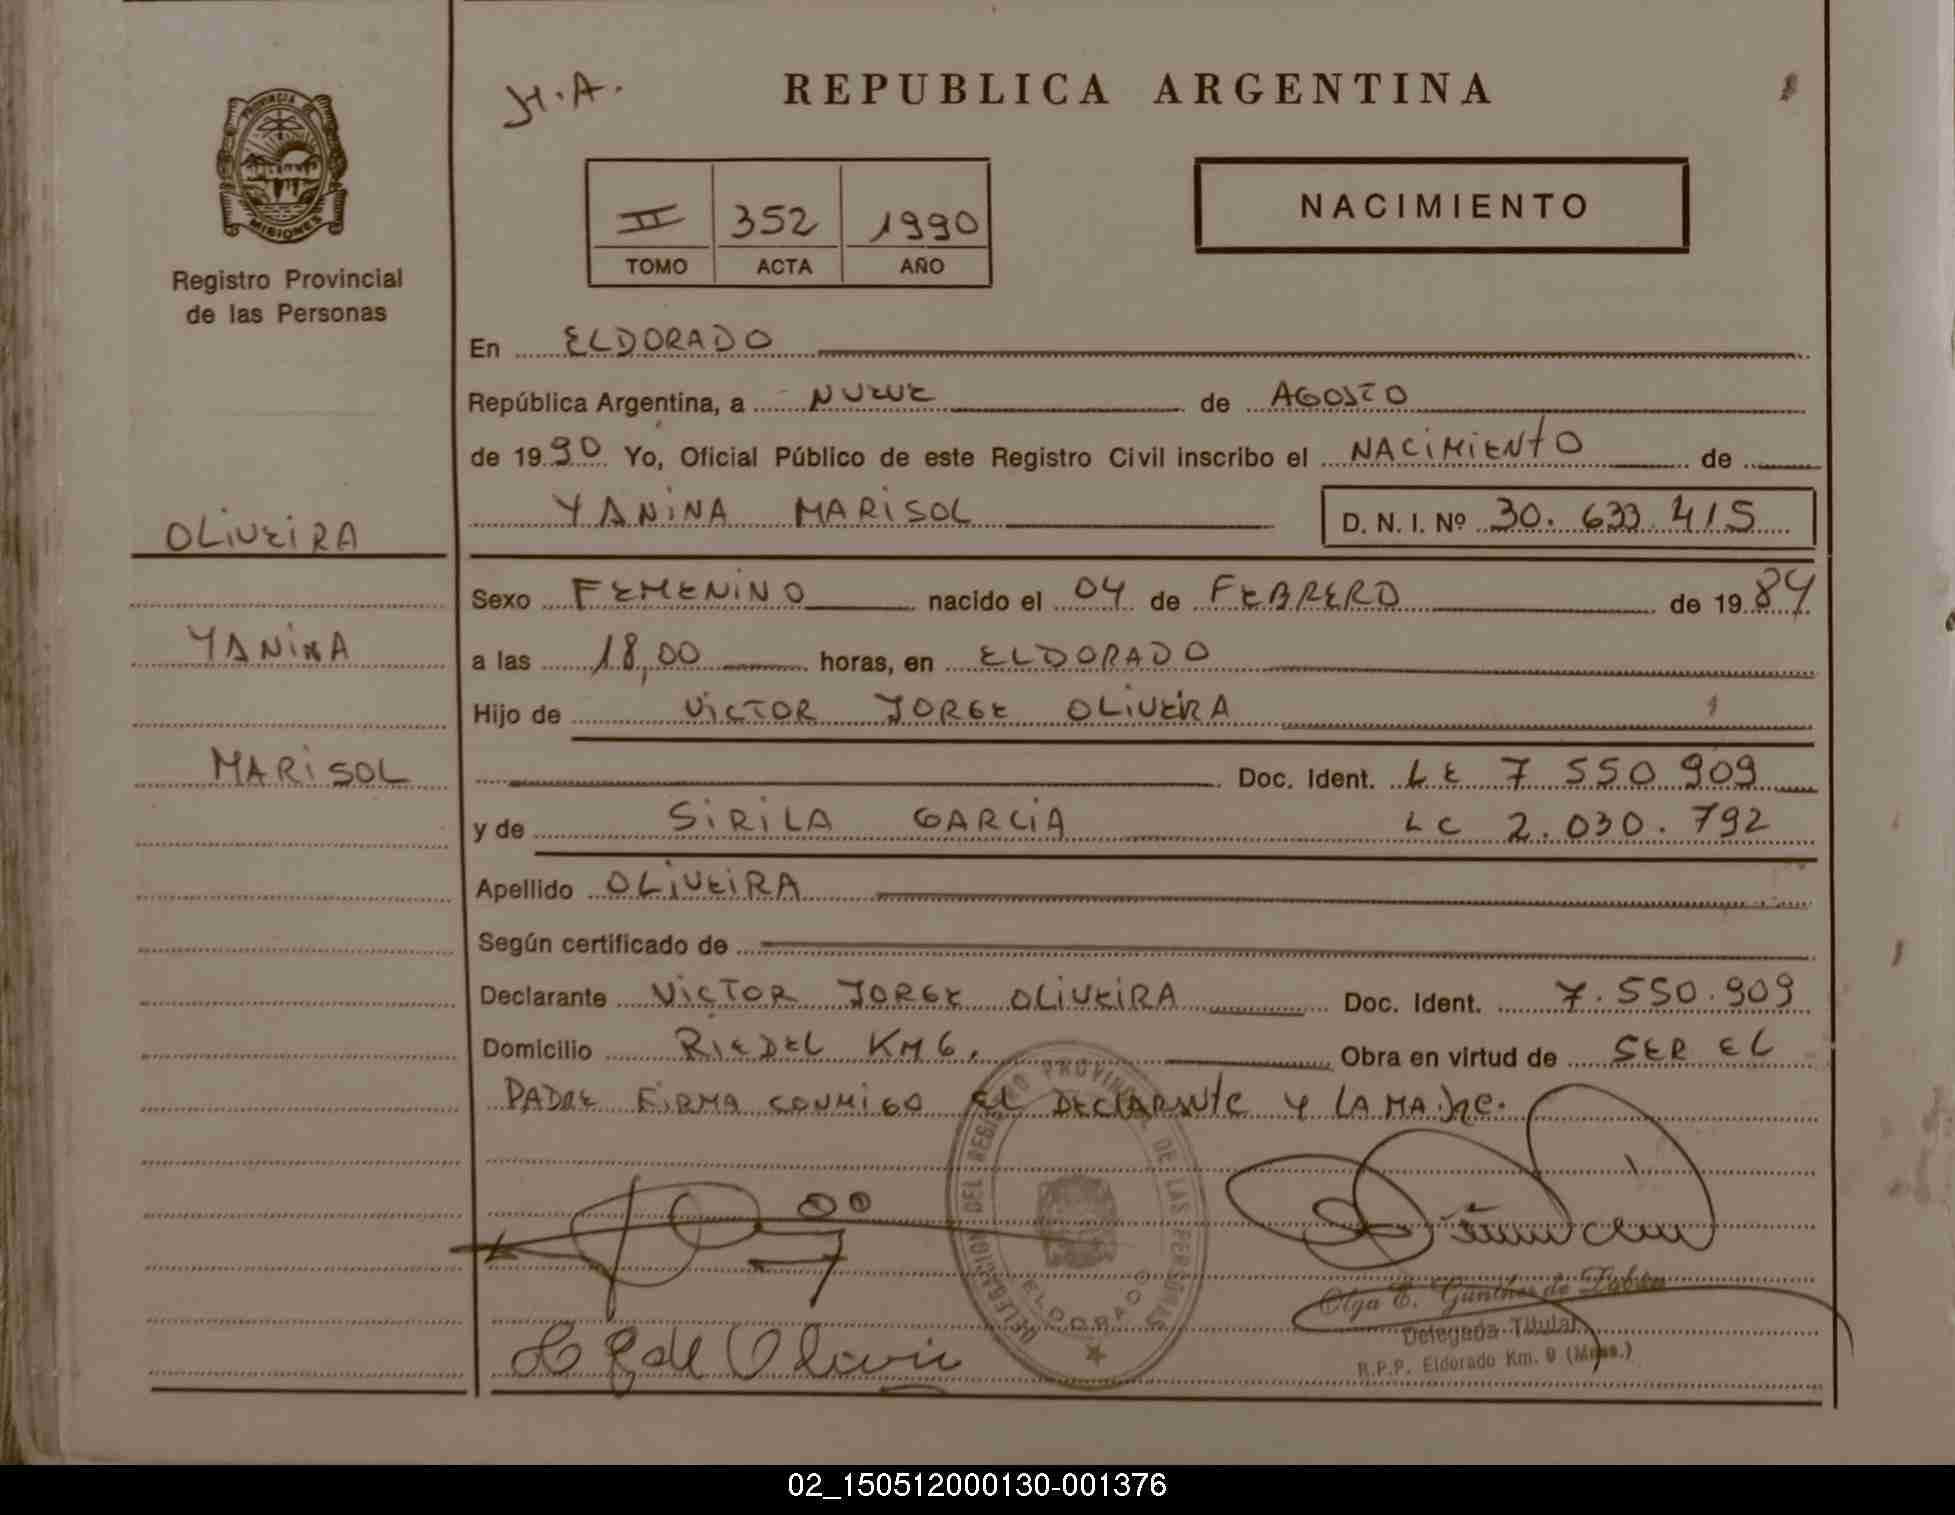 H.A.
REPUBLICA ARGENTINA
PROVINCIA DE MISIONES
Registro Provincial
de las Personas
II 352 1990
TOMO ACTA AÑO
NACIMIENTO
En ELDORADO
República Argentina, a NUEVE de AGOSTO
de 1990 Yo, Oficial Público de este Registro Civil inscribo el NACIMIENTO de
YANINA MARISOL D. N. I. Nº 30.633.415
OLIVEIRA
YANINA
MARISOL
Sexo FEMENINO nacido el 04 de FEBRERO de 1984
a las 18,00 horas, en ELDORADO
Hijo de VICTOR JORGE OLIVEIRA
Doc. Ident. LE 7 550 909
y de SIRILA GARCIA LC 2.030.792
Apellido OLIVEIRA
Según certificado de
Declarante VICTOR JORGE OLIVEIRA Doc. Ident. 7.550.909
Domicilio RIEDEL KM 6, Obra en virtud de SER EL
PADRE FIRMA CONMIGO EL DECLARANTE Y LA MADRE.
DELEGACION DEL REGISTRO PROVINCIAL DE LAS PERSONAS
ELDORADO
Olga E. Günther de
Delegada Titular
R.P.P. Eldorado Km. 9 (Mnes.)
02_150512000130-001376